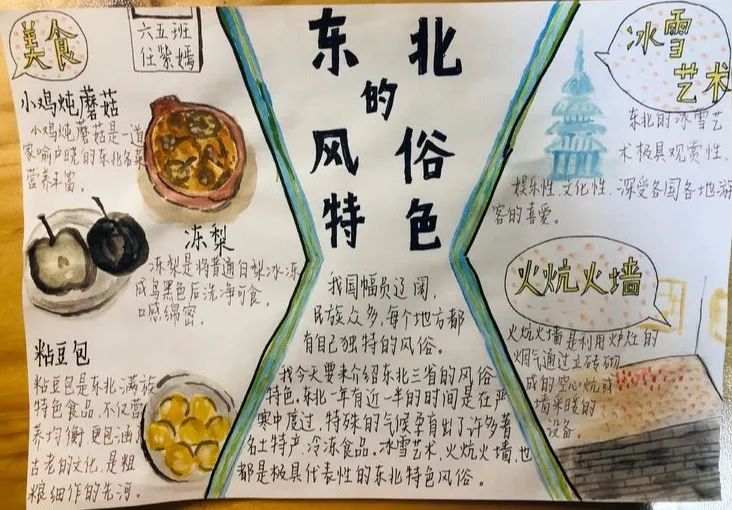 美食
六五班
任紫嫣
小鸡炖蘑菇
小鸡炖蘑菇是一道
家喻户晓的东北名菜
营养丰富。
冻梨
冻梨是将普通白梨冰冻
成乌黑色后洗净可食
口感绵密。
粘豆包
粘豆包是东北满族
特色食品,不仅营
养均衡,更包涵了
古老的文化,是粗
粮细作的先河。
东北
的
风俗
特色
我国幅员辽阔,
民族众多,每个地方都
有自己独特的风俗。
我今天要来介绍东北三省的风俗
特色,东北一年有近一半的时间是在严
寒中度过,特殊的气候孕育出了许多著
名土特产,冷冻食品。冰雪艺术,火炕火墙,也
都是极具代表性的东北特色风俗。
冰雪
艺术
东北的冰雪艺
术极具观赏性,
娱乐性,文化性,深受各国各地游
客的喜爱。
火炕火墙
火炕火墙是利用炉灶的
烟气通过立砖砌
成的空心炕或
墙采暖的
设备。